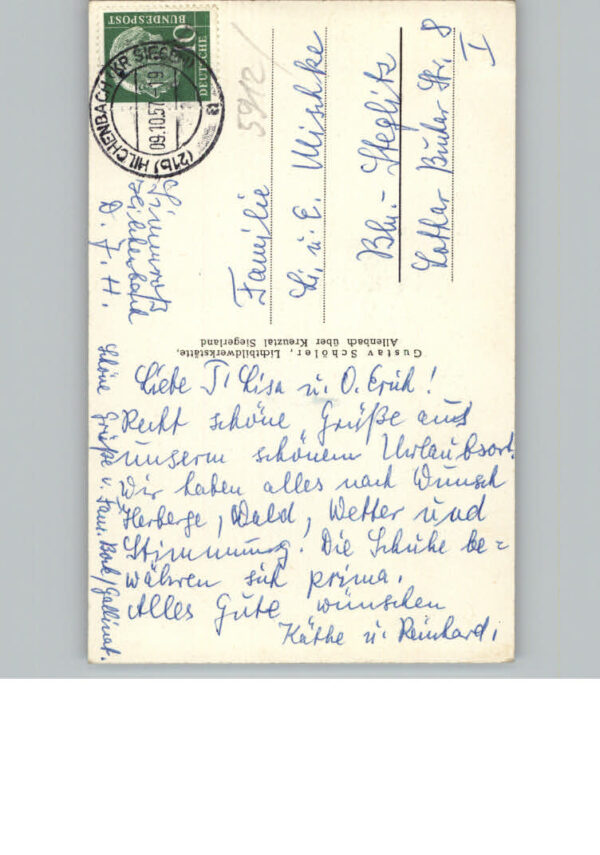 DEUTSCHE
BUNDESPOST
10
(21b) HILCHENBACH (KR SIEGEN)
09.10.57
a
5912/
Familie
Li. u. E. Mischke
Bln.- Steglitz
Lothar Bucher Str. 8
I
D. J. H.
Gustav Schöler, Lichtbildwerkstätte,
Allenbach über Kreuztal Siegerland
Liebe T. Lisa u. O. Erich!
Recht schöne Grüße aus
unserm schönem Urlaubsort.
Wir haben alles nach Wunsch
Herberge, Wald, Wetter und
Stimmung. Die Schuhe be=
währen sich prima.
Alles Gute wünschen
Käthe u. Reinhard.
Schöne Grüße v. Fam. Bork/Gallinat.